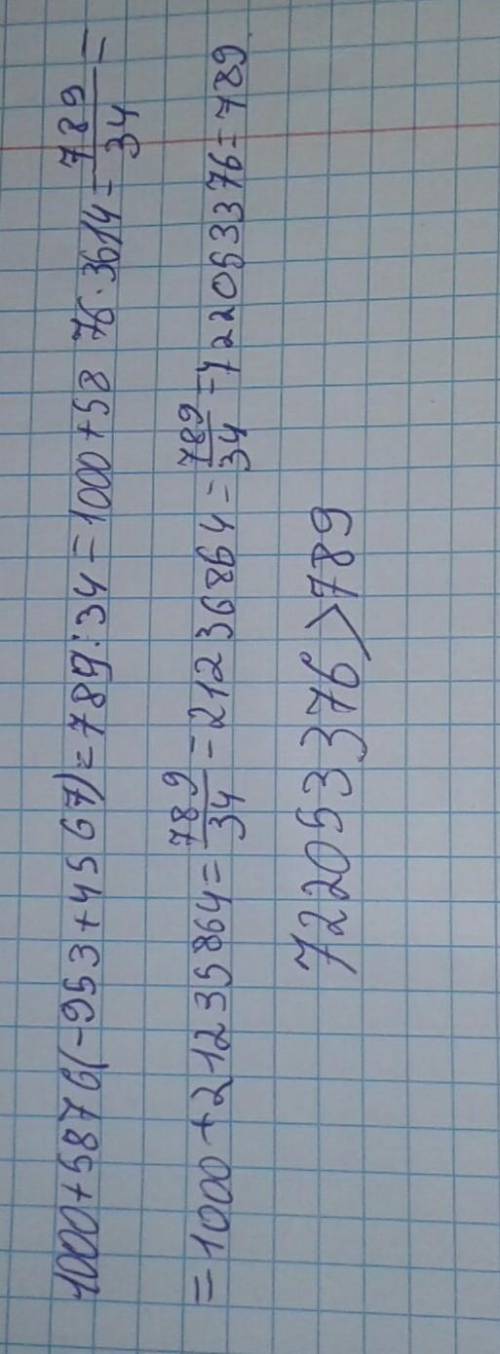 1000+5876(-953+4567)=789:34=1000+58 76·3614=789/34=
=1000+21235864=789/34=21236864=789/34=722053376=789
722053376>789